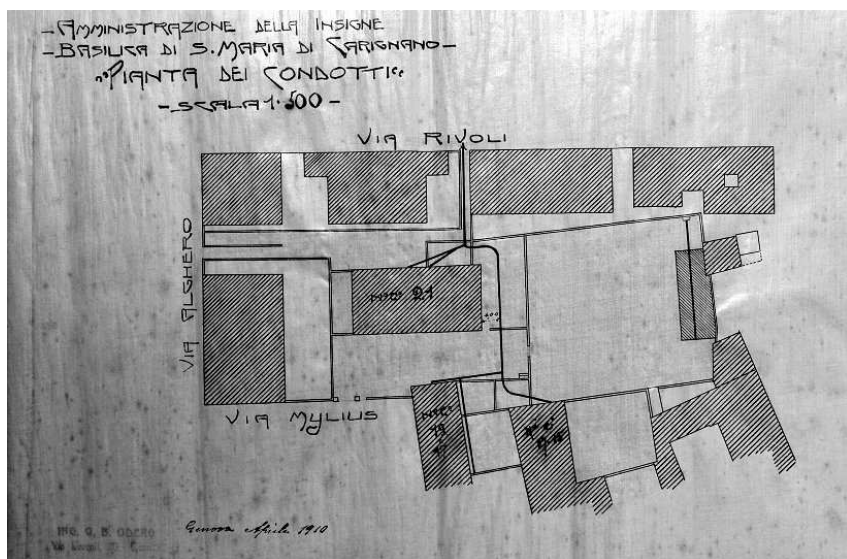 - AMMINISTRAZIONE DELLA INSIGNE
- BASILICA DI S. MARIA DI CARIGNANO -
"PIANTA DEI CONDOTTI"
- SCALA 1:500 -
VIA RIVOLI
VIA ALGHERO
N°C° 21
VIA MYLIUS
N°C°
19
17
ING. G. B. ODERO
Genova Aprile 1910